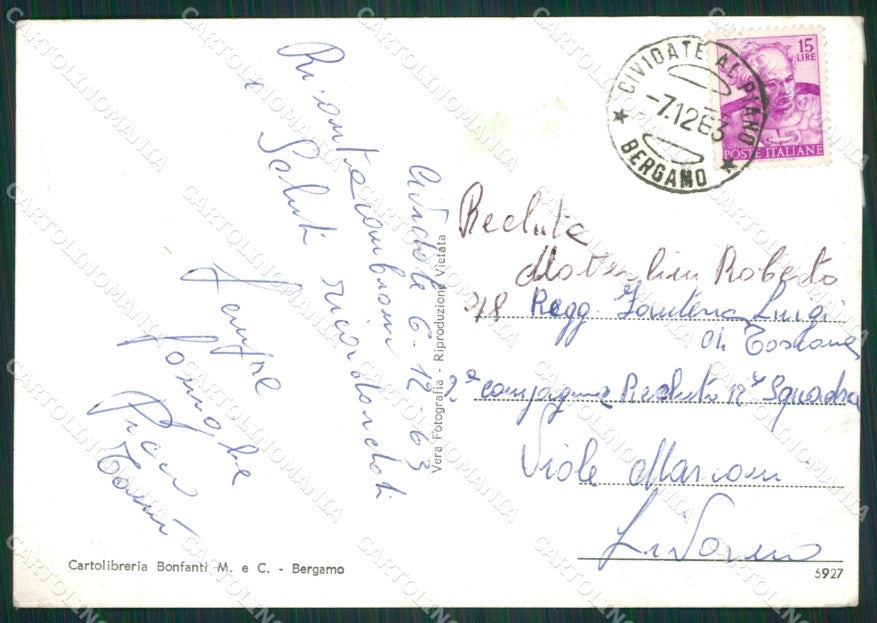 Cividate 6-12-63
Ricambiamo
i Saluti ricordandoti
Sempre
famiglia
Pier
15
LIRE
POSTE ITALIANE
CIVIDATE AL PIANO
-7.12.63
BERGAMO
Recluta
Roberto
78 Regg. Fanteria Luigi
di Toscana
2ª compagnia Reclute 12ª Squadra
Viale Marconi
Livorno
Vera Fotografia - Riproduzione Vietata
Cartolibreria Bonfanti M. e C. - Bergamo
5927
CARTOLINOMANIA